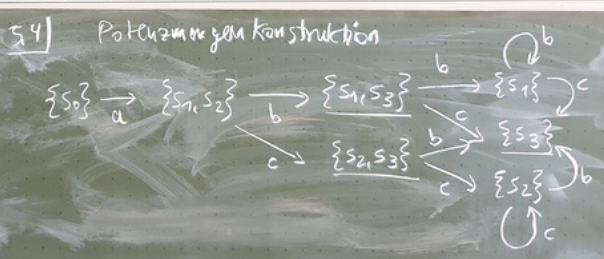 5.4) Potenzmengenkonstruktion
{s₀} a {s₁,s₂} b {s₁,s₃} b {s₁} b
c c c
{s₂,s₃} b {s₃}
c {s₂} b
c